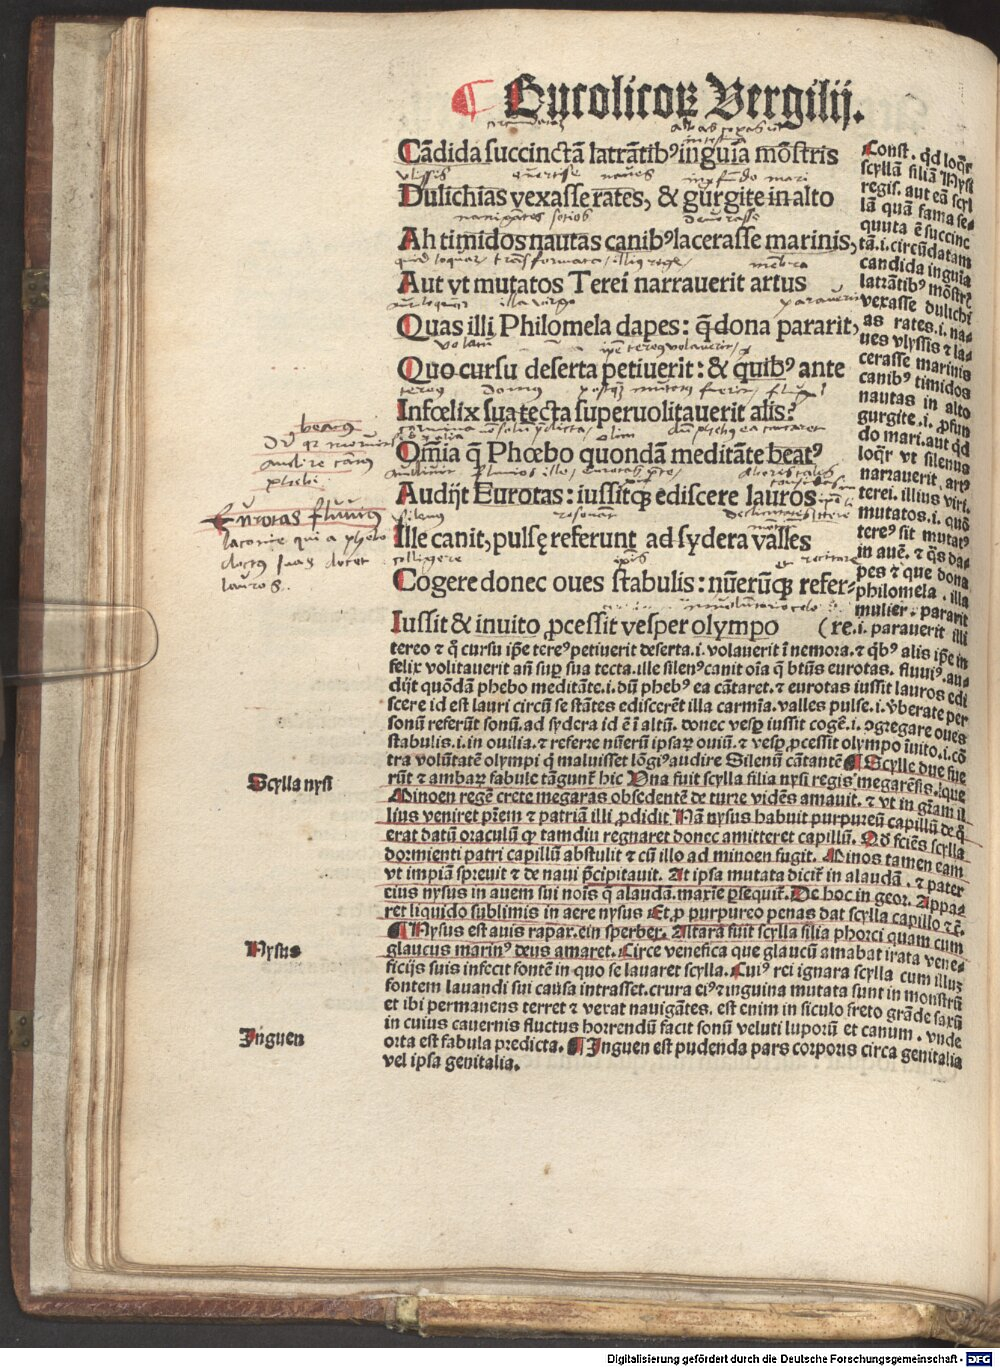 Bucolicoꝝ Vergilij.
Cādida succinctā latrātibꝰ inguia mōstris
Dulichias vexasse rates, & gurgite in alto
Ah timidos nautas canibꝰ lacerasse marinis,
Aut vt mutatos Terei narrauerit artus
Quas illi Philomela dapes: q̄ dona pararit,
Quo cursu deserta petiuerit: & quibꝰ ante
Infœlix sua tecta superuolitauerit alis?
Om̄ia q̄ Phœbo quondā meditāte beatꝰ
Audijt Eurotas: iussitqꝫ ediscere lauros
Ille canit, pulsę referunt ad sydera valles
Cogere donec oues stabulis: nūerūqꝫ refer-
Iussit & inuito ꝓcessit vesper olympo (re.
Const. qd loqr̄
scyllā filiā Nysi
regis. aut eā scyl
lā quā fama se-
quuta ē succinc
tā.i. circūdatam
candida inguia
latrātibꝰ mōstrꝭ
vexasse dulichi
as rates.i. na-
ues vlyssis ⁊ la-
cerasse marinis
canibꝰ timidos
nautas in alto
gurgite .i. ꝓfun
do mari. aut qd
loqr̄ vt silenus
narrauerit artꝰ
terei. illius viri.
mutatos .i. quō
tereꝰ sit mutatꝰ
in auē. ⁊ q̄s da-
pes ⁊ que dona
philomela . illa
mulier. pararit
i. parauerit illi
tereo ⁊ q̄ cursu ip̄e tereꝰ petiuerit deserta.i. volauerit ī nemora. ⁊ qbꝰ alis ip̄e in
felix volitauerit añ suꝑ sua tecta. ille silenꝰ canit oīa q̄ btūs eurotas. fluuiꝰ. au-
dijt quōdā phebo meditāte.i. dū phebꝰ ea cātaret. ⁊ eurotas iussit lauros edi
scere id est lauri circū se stātes edisceret illa carmīa. valles pulse .i. v̄berate per
sonū referūt sonū. ad sydera id ē ī altū. donec vesꝑ iussit cogē.i. ꝯgregare oues
stabulis .i. in ouilia. ⁊ referre nūerū ipsaꝝ ouiū. ⁊ vesꝑ ꝓcessit olympo īuito.i. cō
tra volūtatē olympi q̄ maluisset lōgiꝰ audire Silenū cātantē ¶ Scylle due fue
rūt ⁊ ambaꝝ fabule tāgunt̄ hic Vna fuit scylla filia nysi regis megarēsis. que
Minoen regē crete megaras obsedentē de turre vidēs amauit. ⁊ vt in gr̄am il
lius veniret p̄rem ⁊ patriā illi ꝓdidit. Nā nysus habuit purpureū capillū de q̄
erat datū oraculū ꝙ tamdiu regnaret donec amitteret capillū. Qd̄ sciēs scylla
dormienti patri capillū abstulit ⁊ cū illo ad minoen fugit. Minos tamen eam
vt impiā spreuit ⁊ de naui p̄cipitauit. At ipsa mutata dicit̄ in alaudā . ⁊ pater
eius nysus in auem sui nois q̄ alaudā. maxīe ꝑsequit̄. De hoc in geor. Appa-
ret liquido sublimis in aere nysus Et ꝓ purpureo penas dat scylla capillo ⁊c̄.
¶ Nysus est auis rapax. ein sperber. Altera fuit scylla filia phorci quam cum
glaucus marinꝰ deus amaret. Circe venefica que glaucū amabat irata vene-
ficijs suis infecit fontē in quo se lauaret scylla. Cuiꝰ rei ignara scylla cum illuꝫ
fontem lauandi sui causa intrasset. crura eiꝰ ⁊ inguina mutata sunt in monstrū
et ibi permanens terret ⁊ vexat nauigātes. est enim in siculo freto grāde saxū
in cuius cauernis fluctus horrendū facit sonū veluti luporū et canum . vnde
orta est fabula predicta. ¶ Inguen est pudenda pars corporis circa genitalia
vel ipsa genitalia.
Scylla nysi
Nysus
Inguen
beatus
audire
phebi
Eurotas fluuius
laconie qui a phebo
doctus suas docet
lauros.
Digitalisierung gefördert durch die Deutsche Forschungsgemeinschaft - DFG